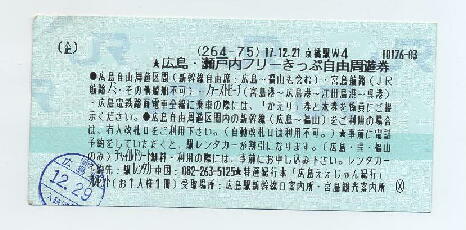 (企) (264-75) 17.12.21 京橋駅W4 10176-03
★広島・瀬戸内フリーきっぷ自由周遊券
●広島自由周遊区間(新幹線自由席:広島~福山も含む)・宮島航路(JR
航路
(宮島港~広島港~江田島港~呉港)
・広島電鉄路面電車全線に乗車の際には、「かえり」券と本券を係員にご提
示ください。●広島自由周遊区間内の新幹線(広島~福山)をご利用の場合
は、有人改札口をご利用下さい。(自動改札口は利用不可。)★事前に電話
予約をしていただくと、駅レンタカーが割引になります。(広島・呉・福山
のみ)
利用の際には、事前にお申し込み下さい。レンタカー
予約先:駅レンタカー中国:082-263-5125★特別通行本「広島ええじゃん紀行」
(お1人様1冊)受取場所:広島駅新幹線口案内所・宮島観光案内所
広島
12.29